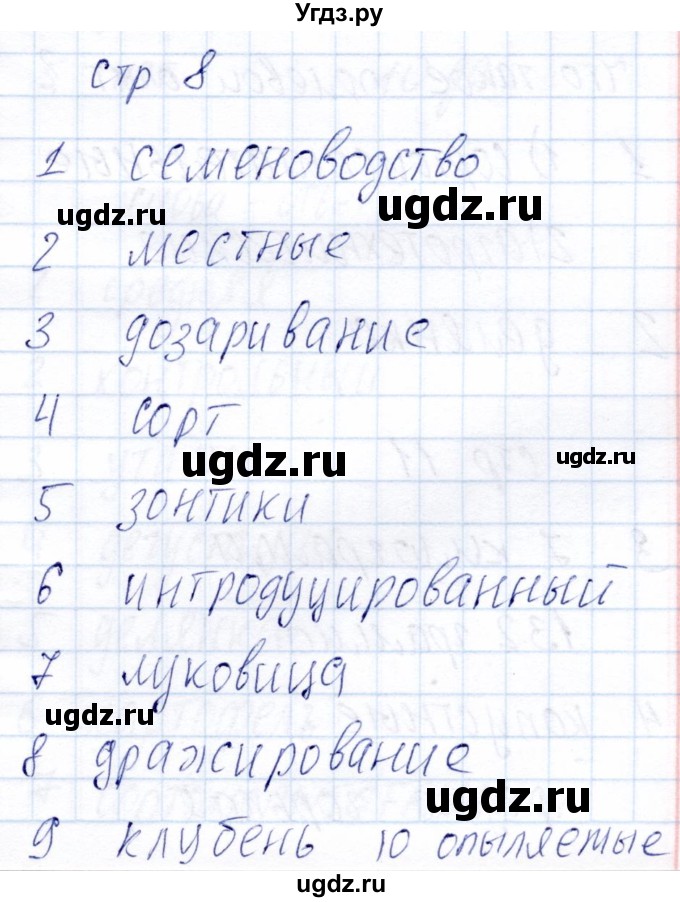 Угдз.ру
стр 8
1 семеноводство
ugdz.ru
ugdz.ru
2 местные
3 дозаривание
ugdz.ru
4 сорт
ugdz.ru
ugdz.ru
5 зонтики
6 интродуцированный
7 луковица
ugdz.ru
8 дражирование
ugdz.ru
9 клубень 10 опыляемые
ugdz.ru